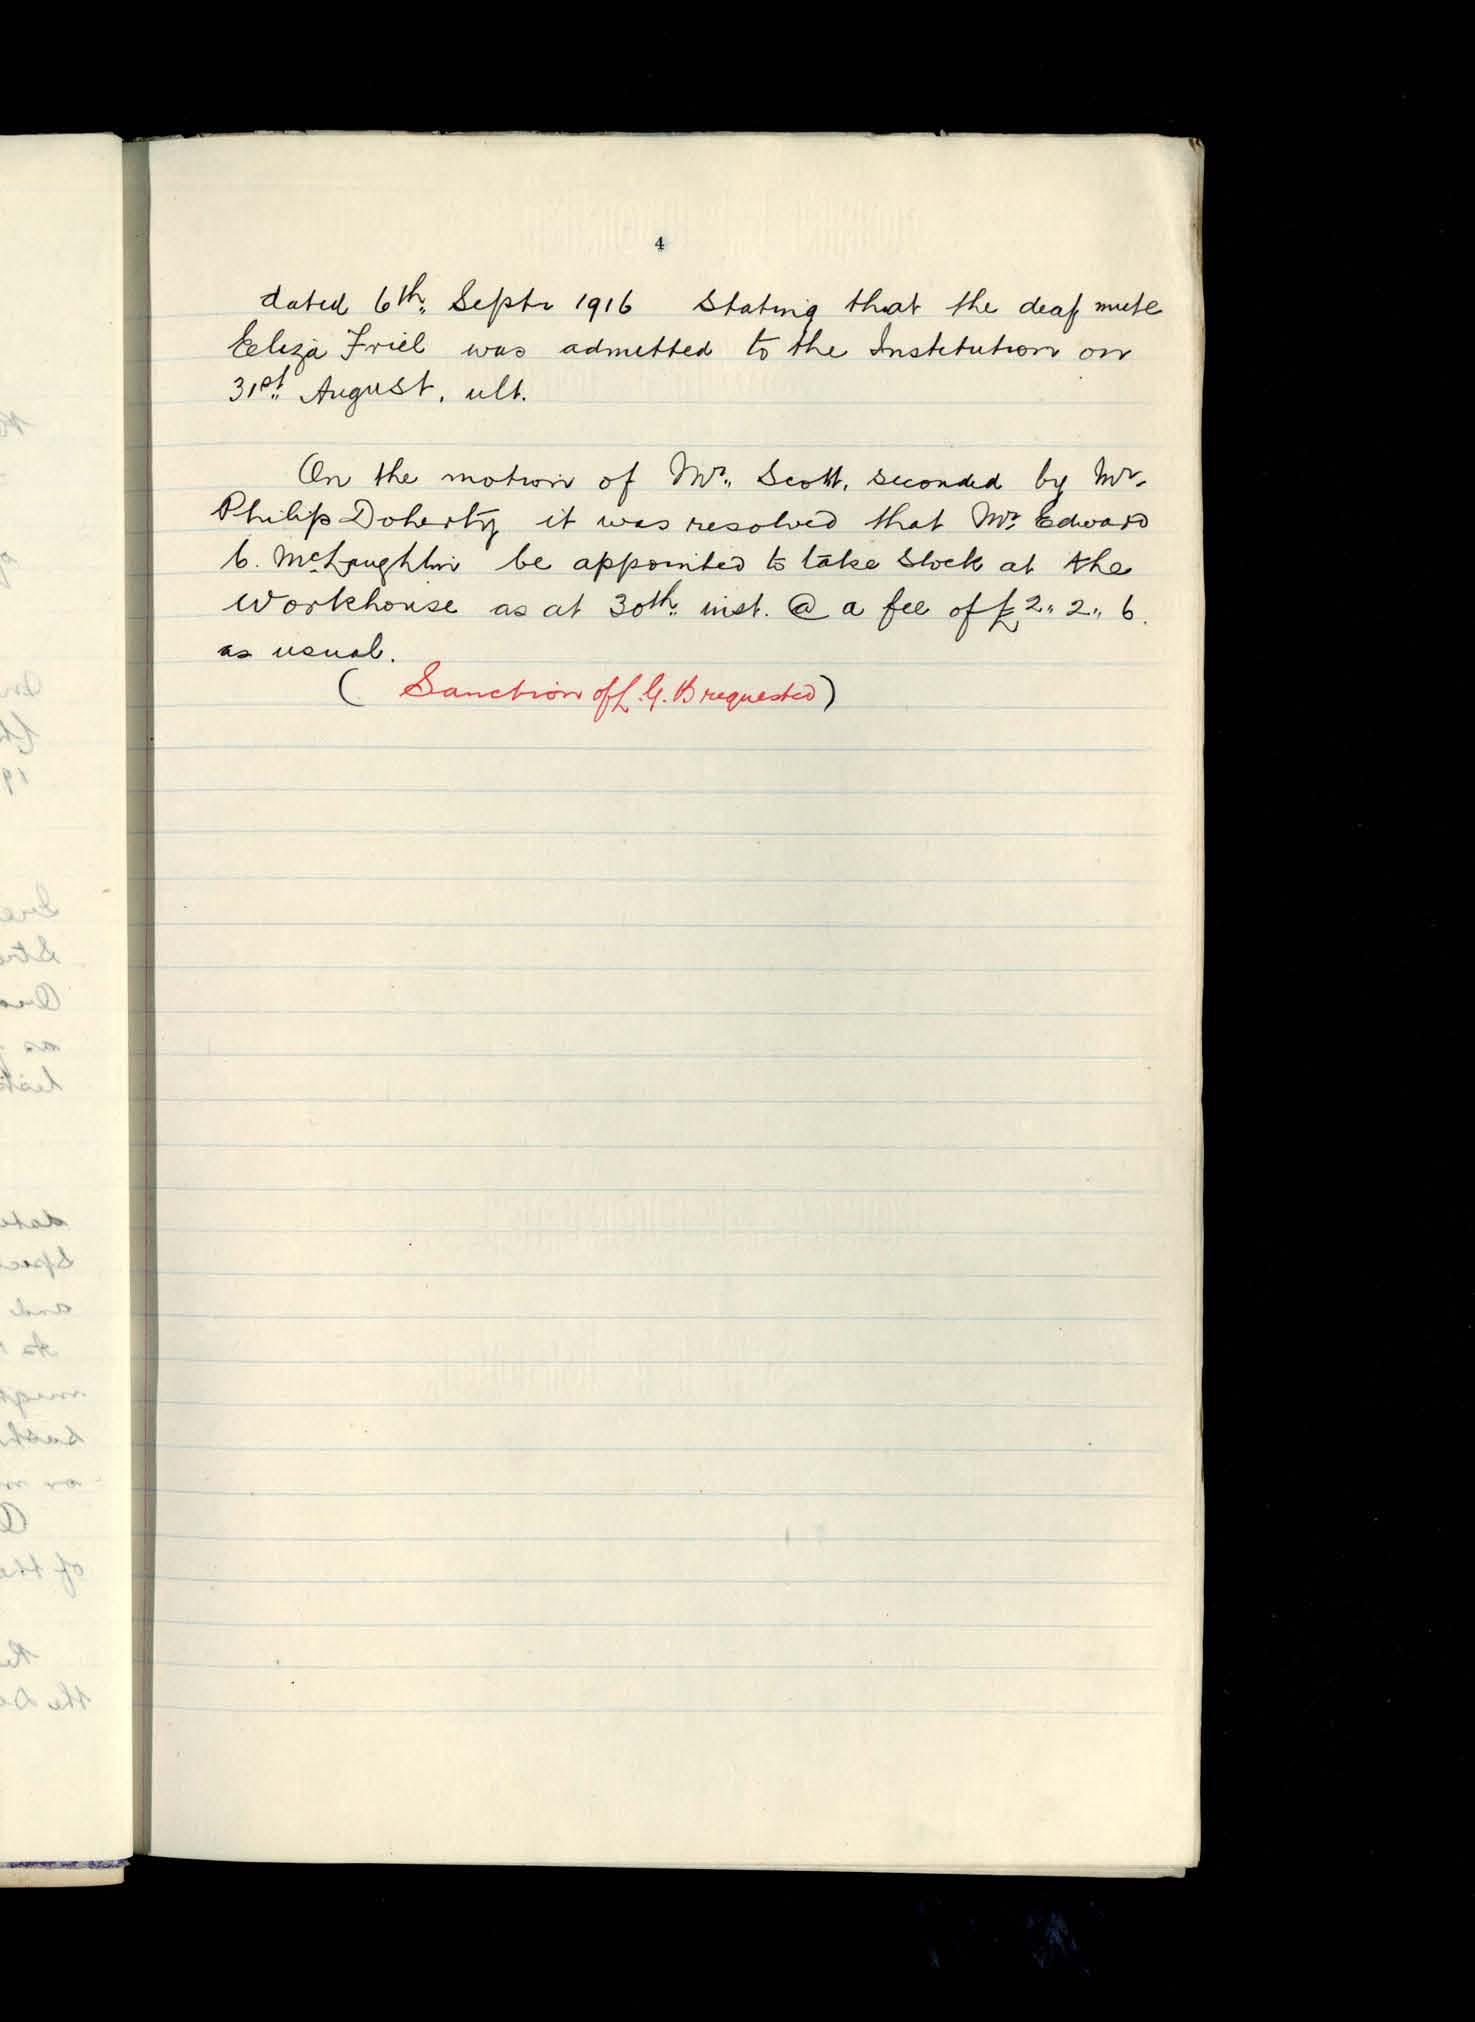 4
dated 6th. Septr 1916 stating that the deaf mute
Eeliza Friel was admitted to the Institution on
31st. August, ult.
On the motion of Mr. Scott, seconded by Mr.
Philip Doherty it was resolved that Mr. Edward
C. McLaughlin be appointed to take stock at the
Workhouse as at 30th. inst. @ a fee of £2,, 2,, 6.
as usual.
( Sanction of L.G.B requested)